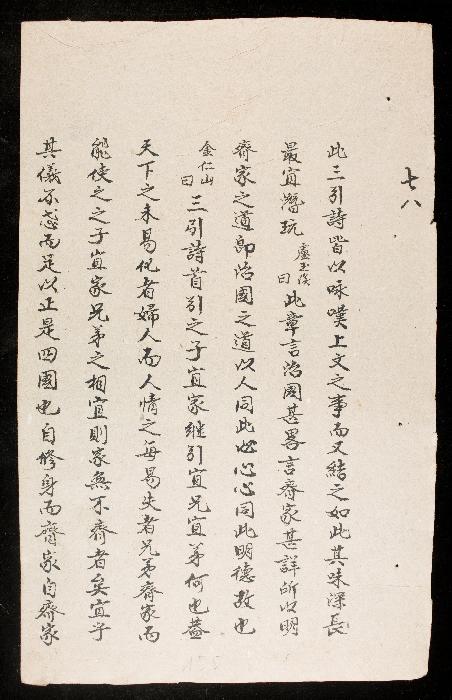 七八
此三引詩皆以咏嘆上文之事而又結之如此其味深長
最宜潛玩 盧玉溪曰 此章言治國甚畧言齊家甚詳所以明
齊家之道即治國之道以人同此心心同此明德故也
金仁山曰 三引詩首引之子宜家継引宜兄宜弟何也葢
天下之未易化者婦人而人情之每易失者兄弟齊家而
能使之之子宜家兄弟之相宜則家無不齊者矣宜乎
其儀不忒而足以正是四國也自修身而齊家自齊家